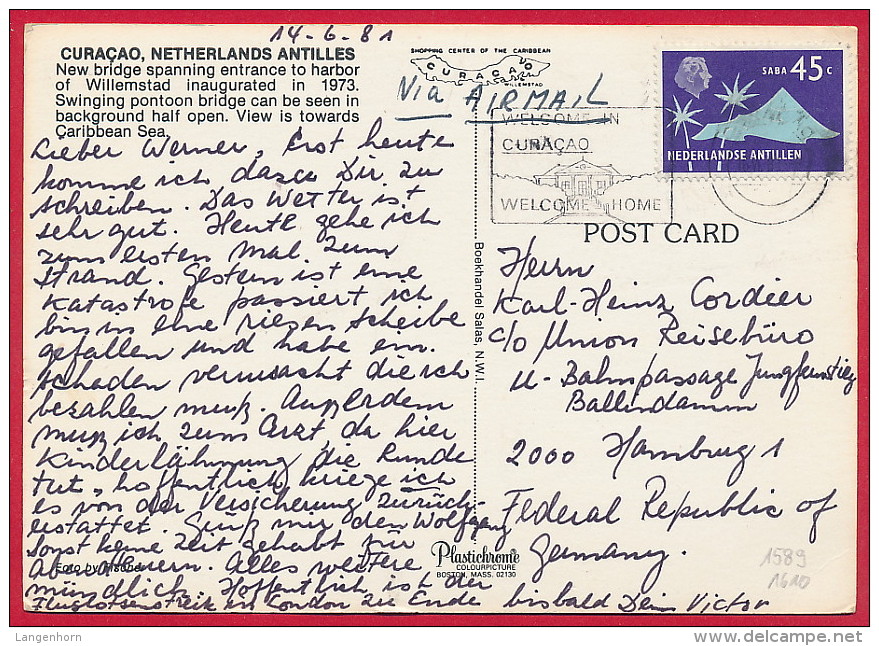 14-6-81
CURAÇAO, NETHERLANDS ANTILLES
New bridge spanning entrance to harbor
of Willemstad inaugurated in 1973.
Swinging pontoon bridge can be seen in
background half open. View is towards
Caribbean Sea.
Lieber Werner, Erst heute
komme ich dazu Dir zu
schreiben. Das Wetter ist
sehr gut. Heute gehe ich
zum ersten Mal zum
Strand. Gestern ist eine
Katastrofe passiert ich
bin in eine riegen scheibe
gefallen und habe ein
schaden verursacht die ich
bezahlen muß. Außerdem
muß ich zum Arzt, da hier
Kinderlähmung die Runde
tut, hoffentlich kriege ich
es von der Versicherung zurück-
erstattet. Grüß mir den Wolfgang
sonst keine Zeit gehabt für
Abenteuern. Alles weitere
mündlich. Hoffentlich ist der
Fluglotsenstreik in London zu Ende bis bald Dein Victor
Foto by
SHOPPING CENTER OF THE CARIBBEAN
CURAÇAO
WILLEMSTAD
Via AIRMAIL
SABA 45 C
NEDERLANDSE ANTILLEN
WELCOME IN
CURAÇAO
WELCOME HOME
POST CARD
Herrn
Karl-Heinz Cordier
c/o Union Reisebüro
U-Bahnpassage Jungfernstieg
Ballindamm
2000 Hamburg 1
Federal Republic of
Germany.
Boekhandel Salas, N.W.I.
Plastichrome
COLOURPICTURE
BOSTON, MASS. 02130
1589
1610
Langenhorn
delcampe.net